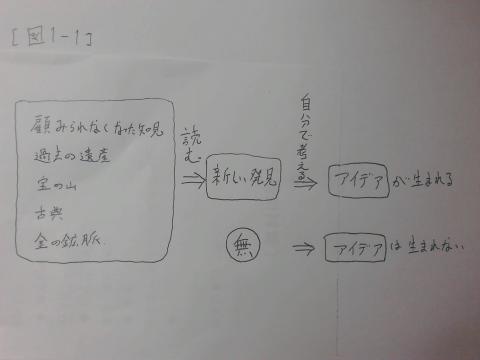 [図1-1]
顧みられなくなった知見
過去の遺産
宝の山
古典
金の鉱脈
読む
新しい発見
自分で考える
アイデアが生まれる
無
アイデアは生まれない